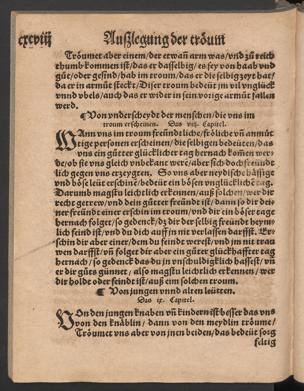 cxcviij Außlegung der tröum
Tröumet aber einem/der etwan arm was/vnd zů reich
thumb kommen ist/das er dasselbig/es sey von haab vnd
gůt/oder gesind/hab im troum/das er die selbig zyt hat/
da er in armůt steckt/Diser troum bedeüt jm vil vnglück
vnnd vbels/auch das er wider in sein vorige armůt fallen
werd.
¶ Von vnderscheyde der menschen/die vns im
troum erscheinen. Das viij. Capitel.
WAnn vns im troum freündtliche/frölich vñ anmůt
tige personen erscheinen/die selbigen bedeüten/das
vns ein gůtter glücklicher tag hernach kommen wer
de/ob sie vns gleich vnbekant werẽ/aber sich doch freündt
lich gegen vns erzeygten. So vns aber neydische hässige
vnd böse leüt erschinẽ/bedeüt ein bösen vnglücklichẽ tag.
Darumb magstu leichtlich erkennen/auß solchen/wer dir
recht getrew/vnd dein gůtter freünd ist/dann so dir dei
ner freünd einer erschin im troum/vnd dir ein böser tage
hernach folget/so gedenck/dz dir der selbig freünd heym
lich feind ist/vnd du dich auff jn nit verlassen darffst. Er
schin dir aber einer/dem du feindt werest/vnd jm nit trau
wen darffst/vñ folget dir aber ein gůter glückhaffter tag
hernach/so gedenck das du jn vnschuldigklich hassest/vñ
er dir gůts günnet/also magstu leichtlich erkennen/wer
dir holdt oder feindt ist/auß eim solchen troum.
¶ Von jungen vnnd alten leütten.
Das ix. Capitel.
VOn den jungen knaben vñ kindern ist besser das vns
von den knäblin/dann von den meydlin tröume/
Tröumet vns aber von jnen beiden/das bedeüt sorg
feltig